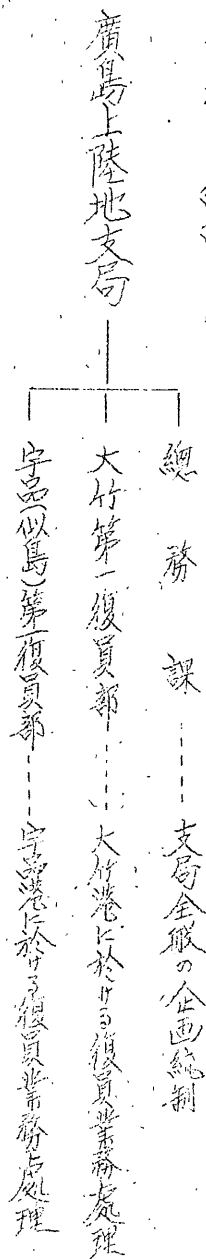 廣島上陸地支局
總務課……支局全般の企画統制
大竹第一復員部……大竹港に於ける復員業務處理
宇品(似島)第二復員部……宇品港に於ける復員業務處理